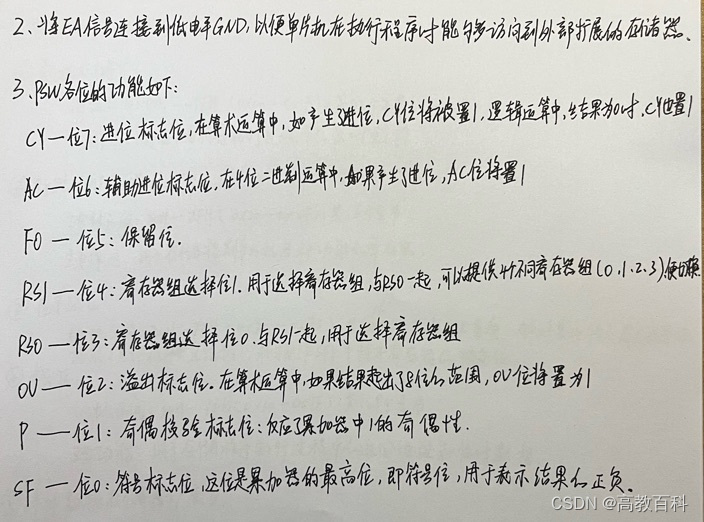 2、将EA信号连接到低电平GND,以便单片机在执行程序时能够访问到外部扩展的存储器。
3、PSW各位的功能如下:
CY—位7:进位标志位,在算术运算中,如产生了进位,CY位将被置1,逻辑运算中,结果为0时,CY也置1
AC—位6:辅助进位标志位,在4位二进制运算中,如果产生了进位,AC位将置1
F0—位5:保留位.
RS1—位4:寄存器组选择位1.用于选择寄存器组,与RS0一起,可以提供4个不同寄存器组(0.1.2.3)
RS0—位3:寄存器组选择位0.与RS1一起,用于选择寄存器组
OV—位2:溢出标志位。在算术运算中,如果结果超出了8位的范围,OV位将置为1
P—位1:奇偶校验标志位:反应了累加器中1的奇偶性.
SF—位0:符号标志位,这位是累加器的最高位,即符号位,用于表示结果的正负、
CSDN @高教百科